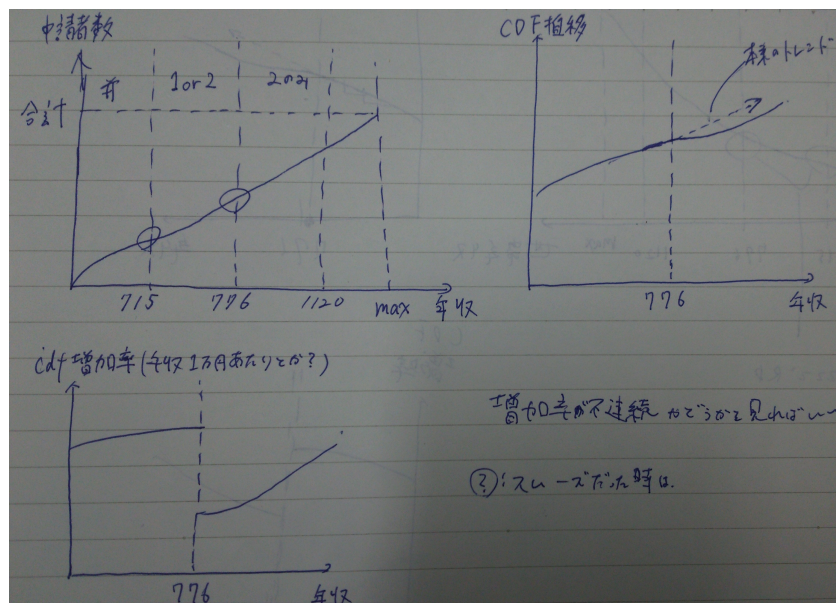 申請者数
合計
1or2
2のみ
715
776
1120
max
年収
CDF推移
本来のトレンド
776
年収
cdf増加率(年収1万円あたりとか?)
776
年収
増加率が不連続かどうかを見ればいい
?:スムーズだった時は